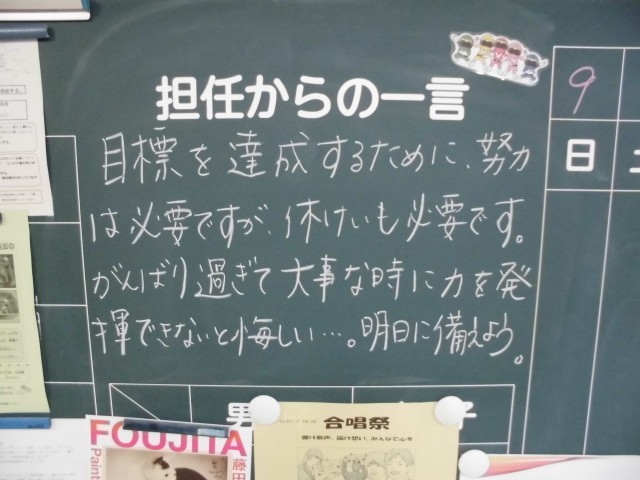 担任からの一言
目標を達成するために、努力
は必要ですが、休けいも必要です。
がんばり過ぎて大事な時に力を発
揮できないと悔しい…。明日に備えよう。
9
日
男
FOUJITA
藤田
Paint
合唱祭